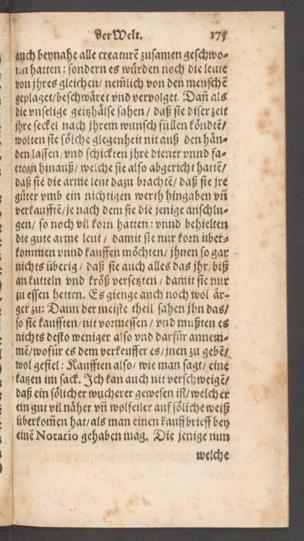 der Welt. 175
auch beynahe alle creaturē zusamen geschwo-
ren hatten: sondern es würden noch die leute
von jhres gleichen / nemlich von den menschē
geplaget / beschwäret vnd vervolget. Dañ als
die vnselige geitzhälse sahen / daß sie diser zeit
jhre seckel nach jhrem wunsch füllen köndtē /
wolten sie sölche glegenheit nit auß den hän-
den lassen / vnd schickten jhre diener vnnd fa-
ctorn hinauß / welche sie also abgericht hattē /
daß sie die arme leut dazu brachtē / daß sie jre
güter vmb ein nichtigen werth hingaben vñ
verkaufftē / je nach dem sie die jenige anschlu-
gen / so noch vil korn hatten: vnnd behielten
die gute arme leut / damit sie nur korn über-
kommen vnnd kauffen möchten / jhnen so gar
nichts überig / daß sie auch alles das jhr / biß
an kutteln vnd kröß versetzten / damit sie nur
zu essen hetten. Es gienge auch noch wol är-
ger zu: Dann der meiste theil sahen jhn das /
so sie kaufften / nit vormessen / vnd mußten es
nichts desto weniger also vnd darfür annem-
mē / wofür es dem verkeuffer es / jnen zu gebē /
wol gefiel: Kaufften also / wie man sagt / eine
katzen im sack. Ich kan auch nit verschweigē /
daß ein sölicher wucherer gewesen ist / welcher
ein gut vil näher vñ wolfeiler auf söliche weiß
überkom̄en hat / als man einen kauffbrieff bey
einē Notario gehaben mag. Die jenige nun
welche